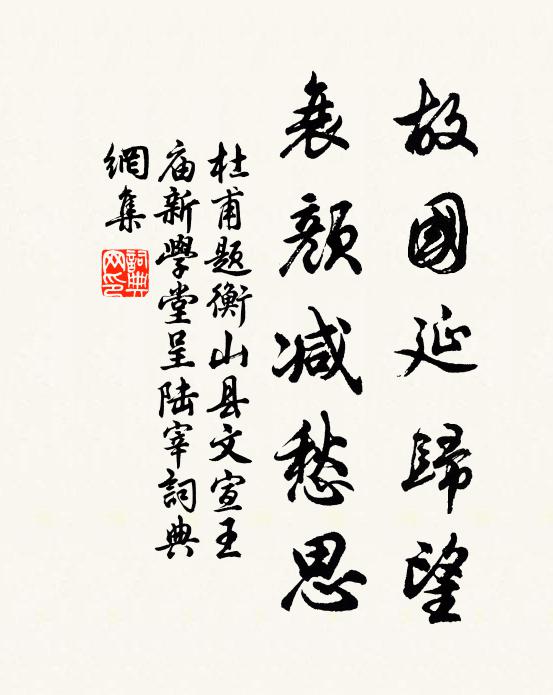 故國延歸望
衰顔减愁思
杜甫题衡山县文宣王
庙新學堂呈陆宰詞典
網集
詞典
网印